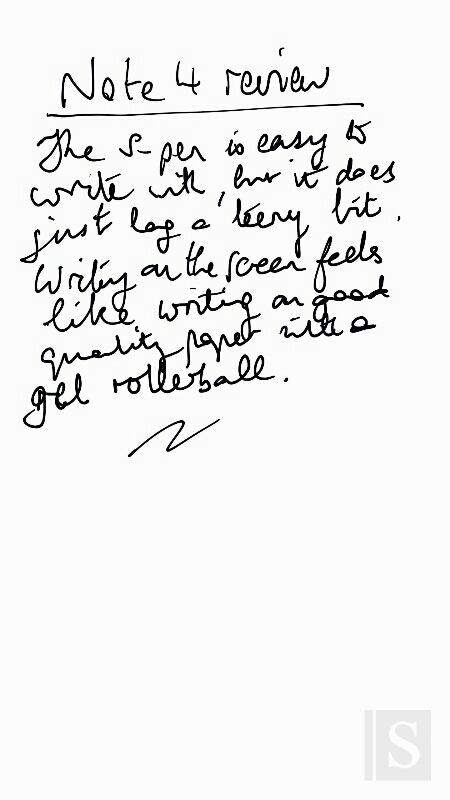 Note 4 review
The S-pen is easy to
write with, but it does
just lag a teeny bit.
Writing on the screen feels
like writing on good
quality paper with a
gel rollerball.
S